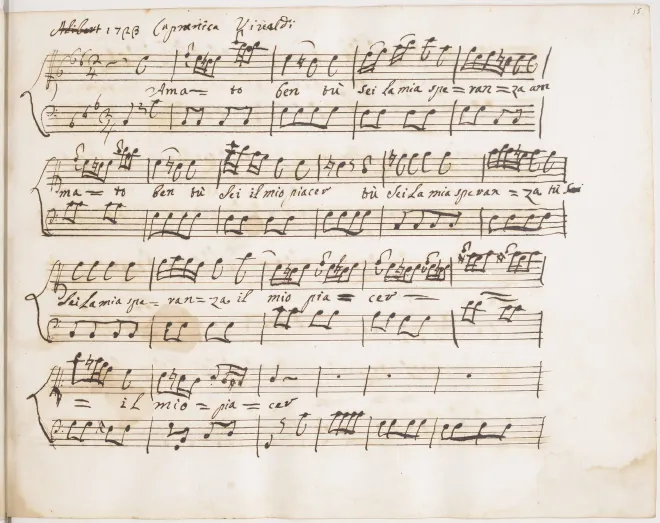 Alibert 1723 Capranica Vivaldi
Ama = to ben tù sei la mia spe = ran = za am
ma = to ben tù sei il mio piacer tù sei la mia speran = za tù sei
sei la mia spe = ran = za il mio pia = cer
= il mio = pia = cer